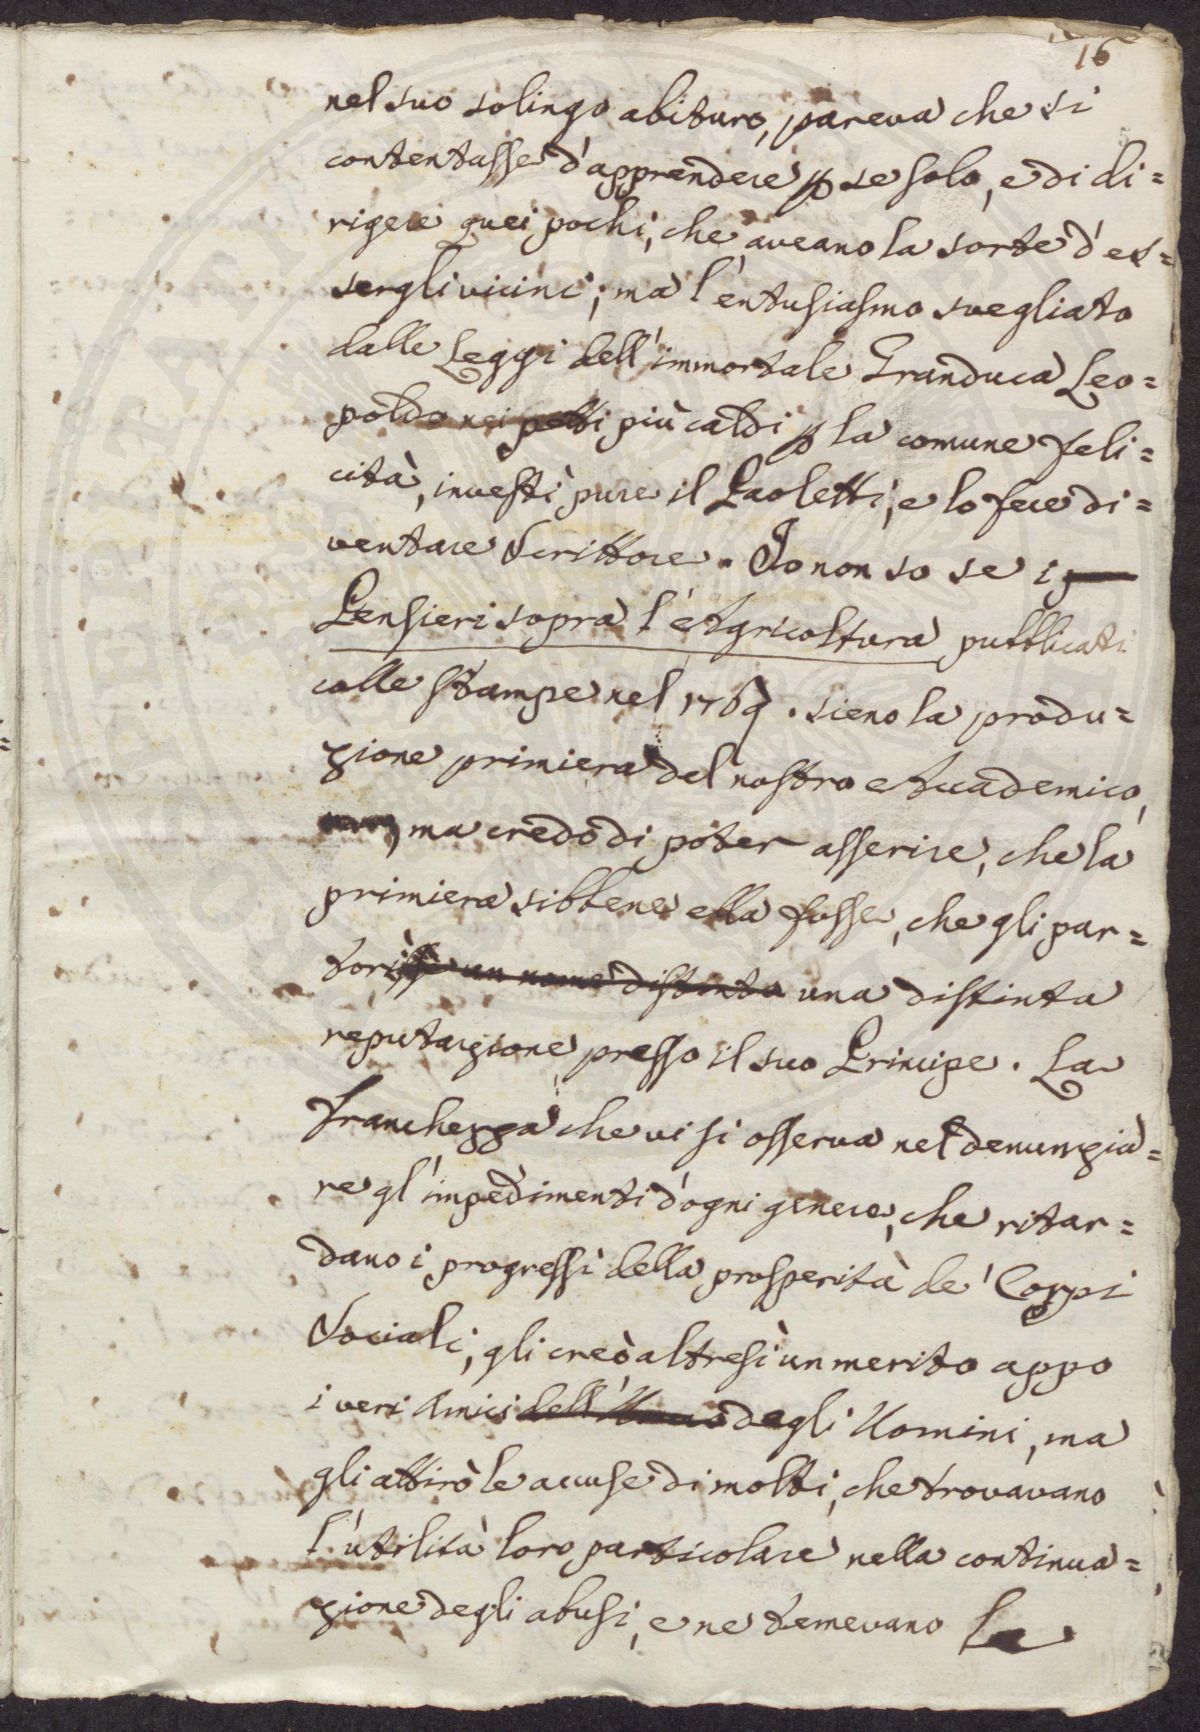 16
nel suo solingo abituro, pareva che si
contentasse d'apprendere p se solo, e di di=
rigere quei pochi, che aveano la sorte d'es=
sergli vicini; ma l'entusiasmo svegliato
dalle Leggi dell'immortale Granduca Leo=
poldo nei petti più caldi p la comune feli=
cità, investì pure il Paoletti, e lo fece di=
ventare Scrittore. Io non so se i
Pensieri sopra l'Agricoltura pubblicati
colle stampe nel 1769. sieno la produ=
zione primiera del nostro Accademico,
ma credo di poter asserire, che la
primiera sibbene ella fosse, che gli par=
torisse un nome distinto una distinta
reputazione presso il suo Principe. La
franchezza che vi si osserva nel denunzia=
re gl'impedimenti d'ogni genere, che ritar=
dano i progressi della prosperità de' Corpi
Sociali, gli creò altresì un merito appo
i veri Amici dell'Uomo degli Uomini, ma
gli attirò le accuse di molti, che trovavano
l'utilità loro particolare nella continua=
zione degli abusi, e ne temevano La